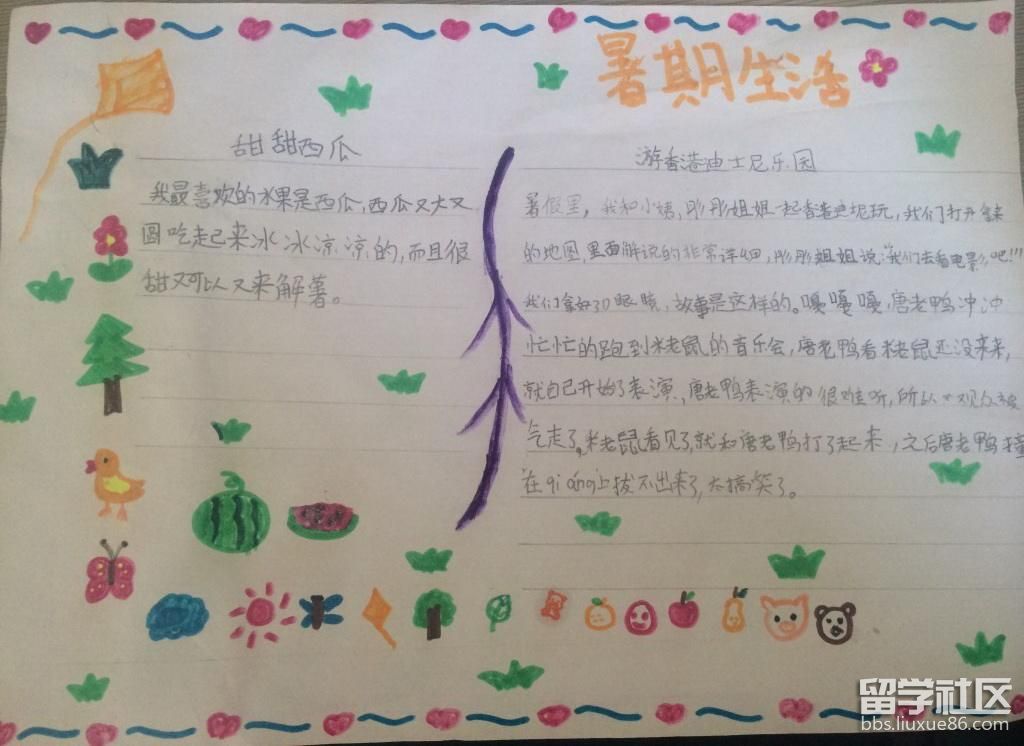 暑期生活
甜甜西瓜
我最喜欢的水果是西瓜,西瓜又大又
圆吃起来冰冰凉凉的,而且很
甜又可以又来解署。
游香港迪士尼乐园
暑假里,我和小姨,彤彤姐姐一起香港迪尼玩,我们打开
的地图,里面解说的非常详细,彤彤姐姐说:“我们去看电影吧!!!”
我们拿好3D眼睛,故事是这样的。嘎嘎嘎,唐老鸭冲冲
忙忙的跑到米老鼠的音乐会,唐老鸭看米老鼠还没来来,
就自己开始了表演,唐老鸭表演的很难听,所以观众被
气走了。米老鼠看见了,就和唐老鸭打了起来,之后唐老鸭撞
在qiáng上拔不出来了,太搞笑了。
留学社区
bbs.liuxue86.com